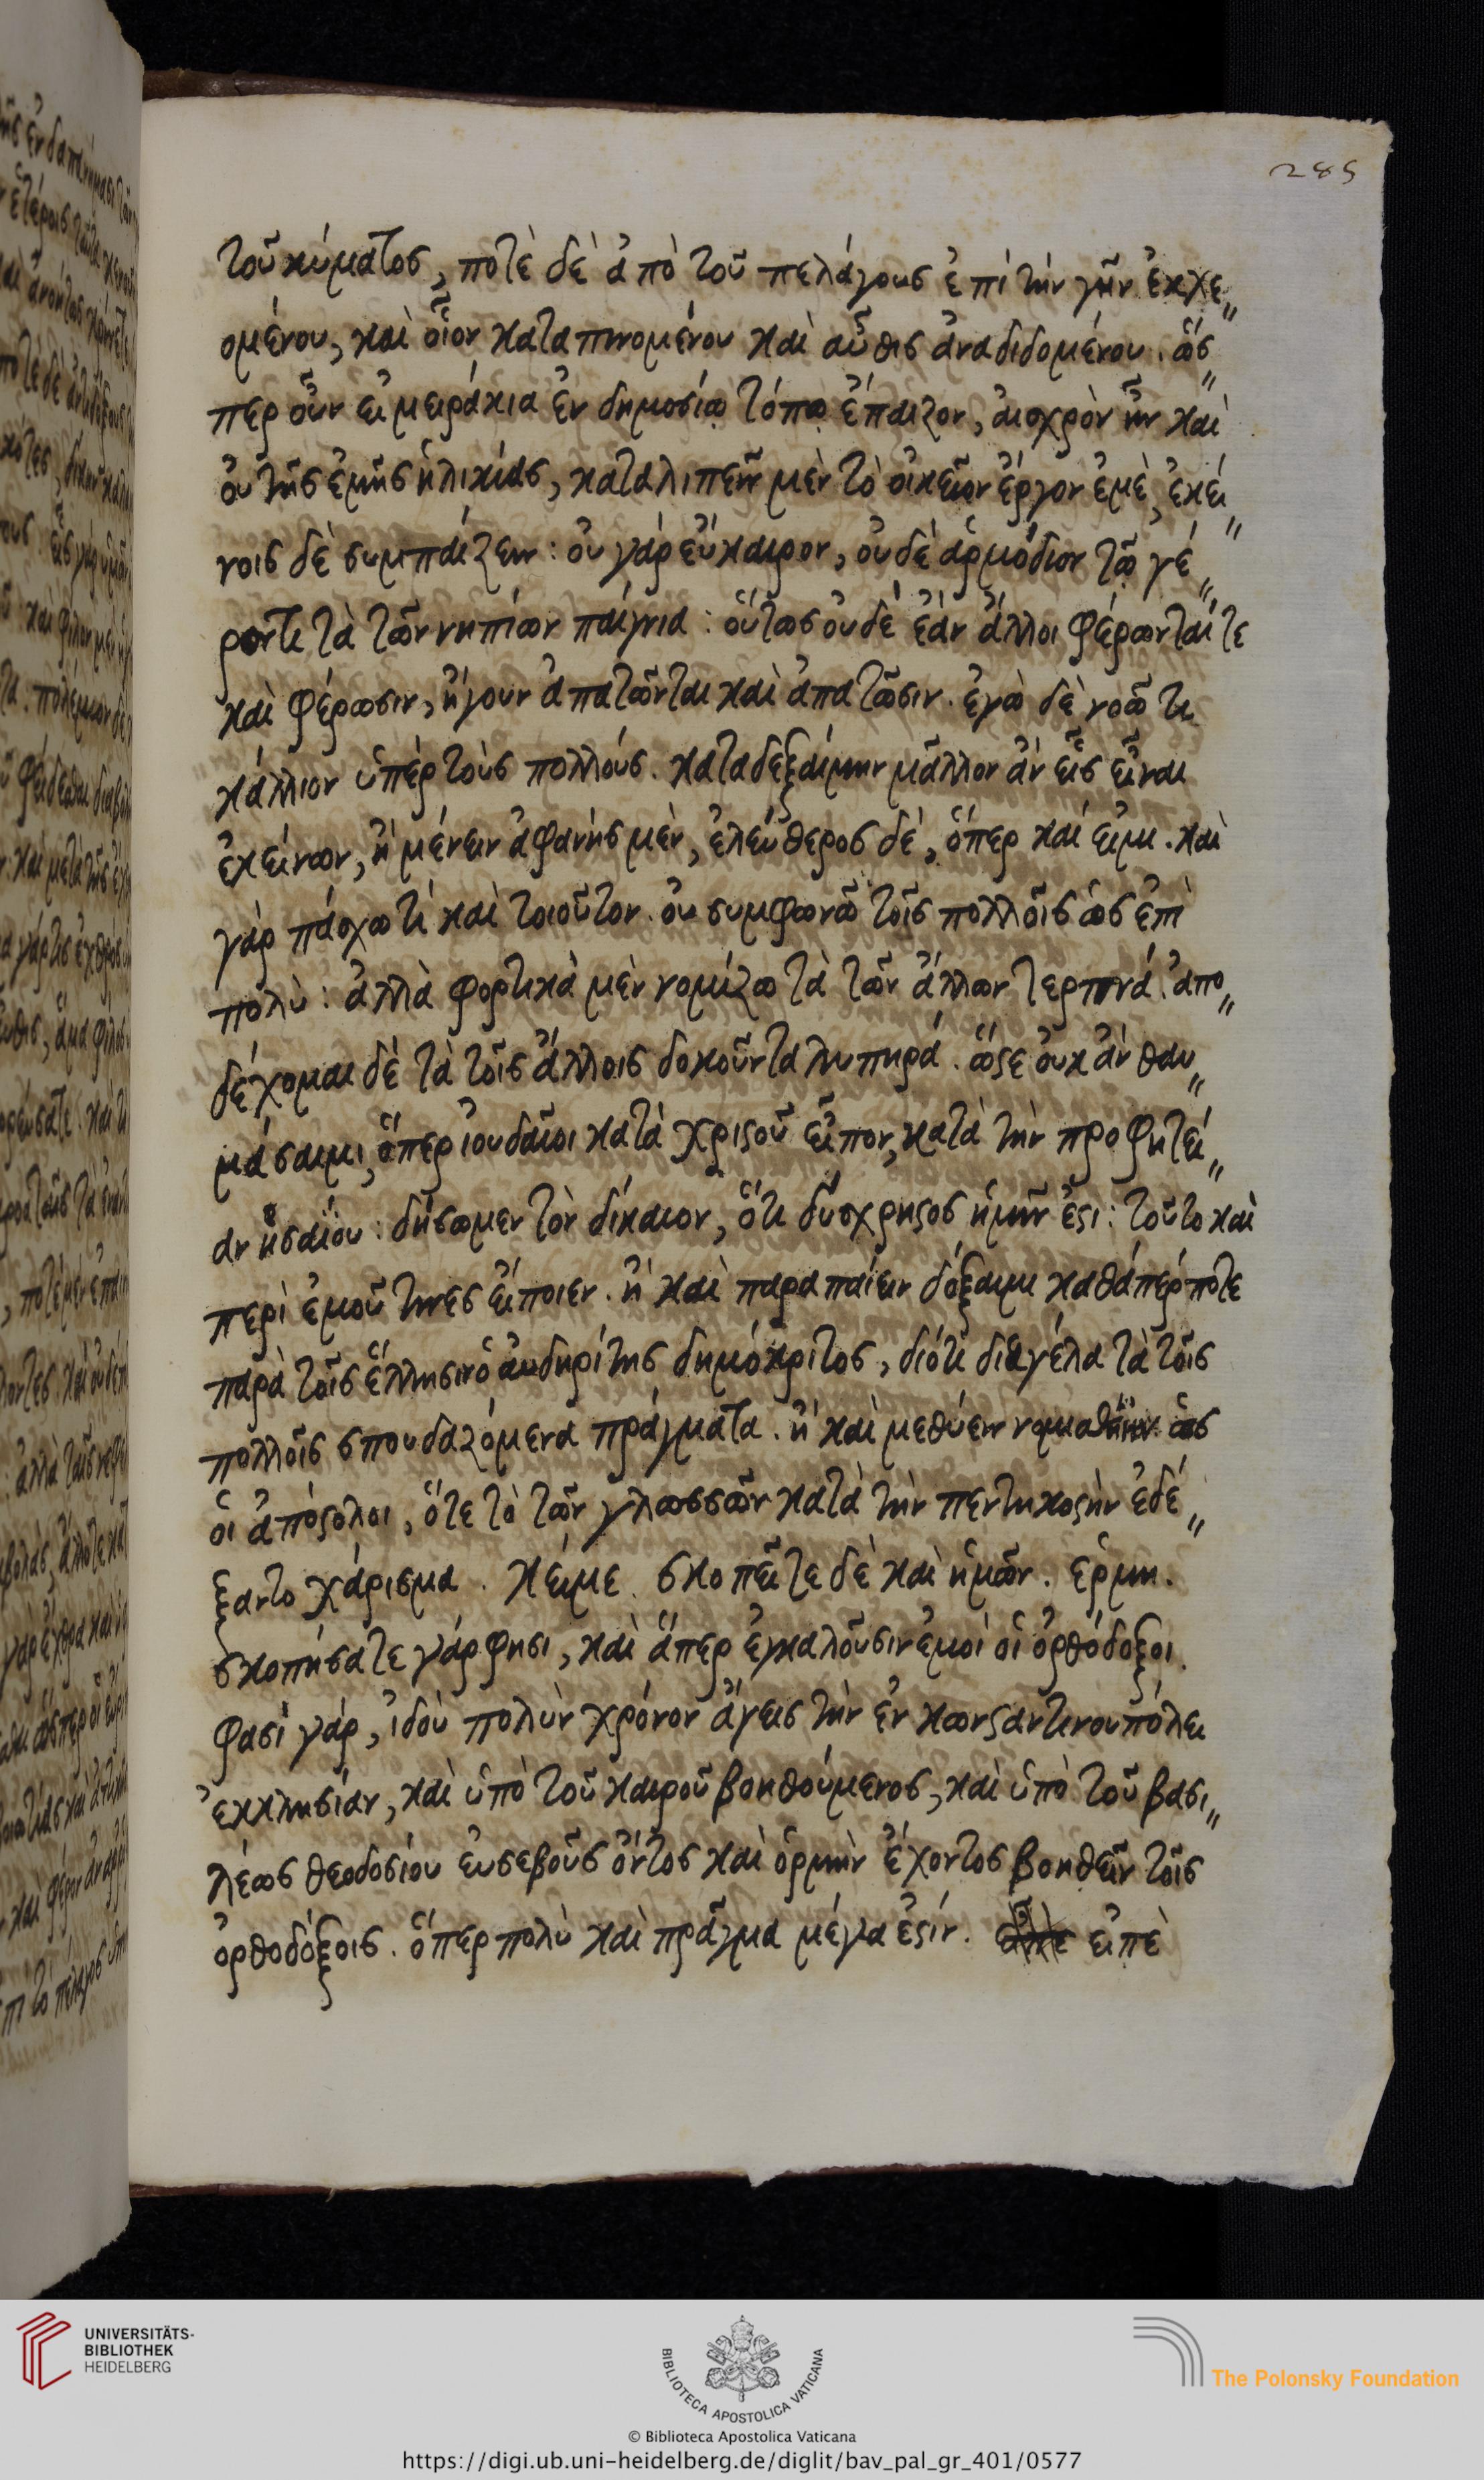 285
τοῦ κύματος, ποτὲ δὲ ἀπὸ τοῦ πελάγους ἐπὶ τὴν γῆν ἐκχε„
ομένου, καὶ οἷον καταπινομένου καὶ αὖθις ἀναδιδομένου. ὥς„
περ οὖν εἰ μειράκια ἐν δημοσίῳ τόπῳ ἔπαιζον, αἰσχρὸν ἦν καὶ
οὐ τῆς ἐμῆς ἡλικίας, καταλιπεῖν μὲν τὸ οἰκεῖον ἔργον ἐμὲ, ἐκεί„
νοις δὲ συμπαίζειν: οὐ γὰρ εὔκαιρον, οὐδὲ ἁρμόδιον τῷ γέ„
ροντι τὰ τῶν νηπίων παίγνια: οὕτως οὐδὲ ἐὰν ἄλλοι φέρωνταί τε
καὶ φέρωσιν, ἤγουν ἀπατῶνται καὶ ἀπατῶσιν. ἐγὼ δὲ νοῶ τι
κάλλιον ὑπὲρ τοὺς πολλούς. καταδεξαίμην μᾶλλον ἂν εἷς εἶναι
ἐκείνων, ἢ μένειν ἀφανὴς μὲν, ἐλεύθερος δὲ, ὅπερ καί εἰμι. καὶ
γὰρ πάσχω τί καὶ τοιοῦτον. οὐ συμφωνῶ τοῖς πολλοῖς ὡς ἐπὶ
πολὺ: ἀλλὰ φορτικὰ μὲν νομίζω τὰ τῶν ἄλλων τερπνά. ἀπο„
δέχομαι δὲ τὰ τοῖς ἄλλοις δοκοῦντα λυπηρά. ὥστε οὐκ ἂν θαυ„
μάσαιμι, ὅπερ ἰουδαῖοι κατὰ χριστοῦ εἶπον, κατὰ τὴν προφητεί„
αν ἡσαΐου: δήσωμεν τὸν δίκαιον, ὅτι δύσχρηστος ἡμῖν ἔστι: τοῦτο καὶ
περὶ ἐμοῦ τινες εἴποιεν. ἢ καὶ παραπαίειν δόξαιμι καθάπέρ ποτε
παρὰ τοῖς ἕλλησιν ὁ ἀυδηρίτης δημόκριτος, διότι διεγέλα τὰ τοῖς
πολλοῖς σπουδαζόμενα πράγματα. ἢ καὶ μεθύειν νομισθείην ὡς
οἱ ἀπόστολοι, ὅτε τὸ τῶν γλωσσῶν κατὰ τὴν πεντηκοστὴν ἐδέ„
ξαντο χάρισμα. κείμε. σκοπεῖτε δὲ καὶ ἡμῶν. ἑρμη.
σκοπήσατε γάρ φησι, καὶ ἅπερ ἐγκαλοῦσιν ἐμοὶ οἱ ὀρθόδοξοι.
φασὶ γάρ, ἰδοὺ πολὺν χρόνον ἄγεις τὴν ἐν κωνσταντινουπόλει
ἐκκλησίαν, καὶ ὑπὸ τοῦ καιροῦ βοηθούμενος, καὶ ὑπὸ τοῦ βασι„
λέως θεοδοσίου εὐσεβοῦς ὄντος καὶ ὁρμὴν ἔχοντος βοηθεῖν τοῖς
ὀρθοδόξοις. ὅπερ πολὺ καὶ πρᾶγμα μέγα ἐστίν. εἰπὲ
UNIVERSITÄTS-
BIBLIOTHEK
HEIDELBERG
BIBLIOTECA APOSTOLICA VATICANA
The Polonsky Foundation
© Biblioteca Apostolica Vaticana
https://digi.ub.uni-heidelberg.de/diglit/bav_pal_gr_401/0577